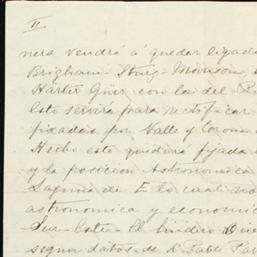 II
nera vendrá á quedar ligada
Brigham - Sturg - Morrison,
Harter Gner con la del
Esto servirá para rectificar
fijadas por Valle y
Hecho esto quedará fijada
y la posicion Astronomica
Laguna de E lo cual no
astronomica y economic
Sur-Este. El lindero
segun datos de Dr Pablo